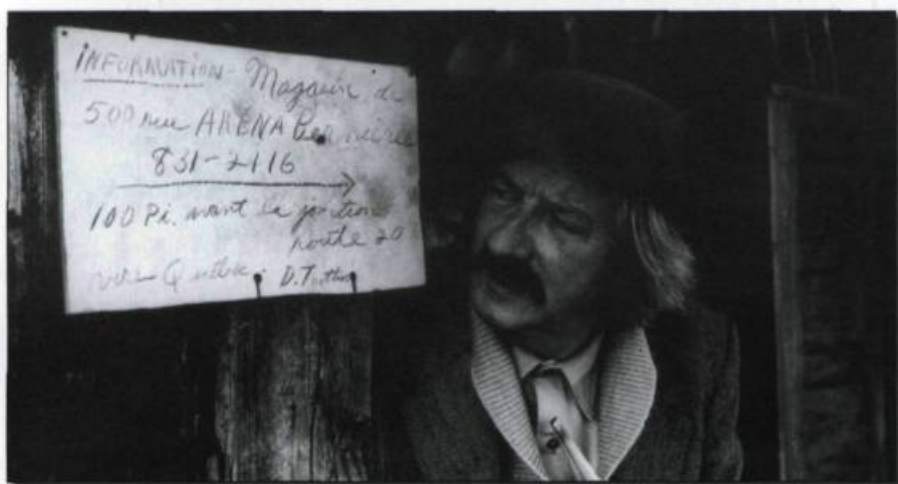 INFORMATION - Magasin de
500 rue ARENA
831-2116
100 Pi. avant la jonction
route 20
vers Québec. D.